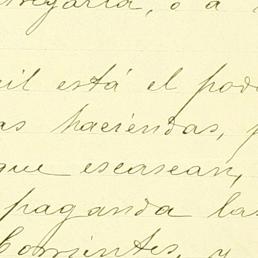 o a
il está el pod
as haciendas, p
que escasean,
paganda las
Corrientes, y